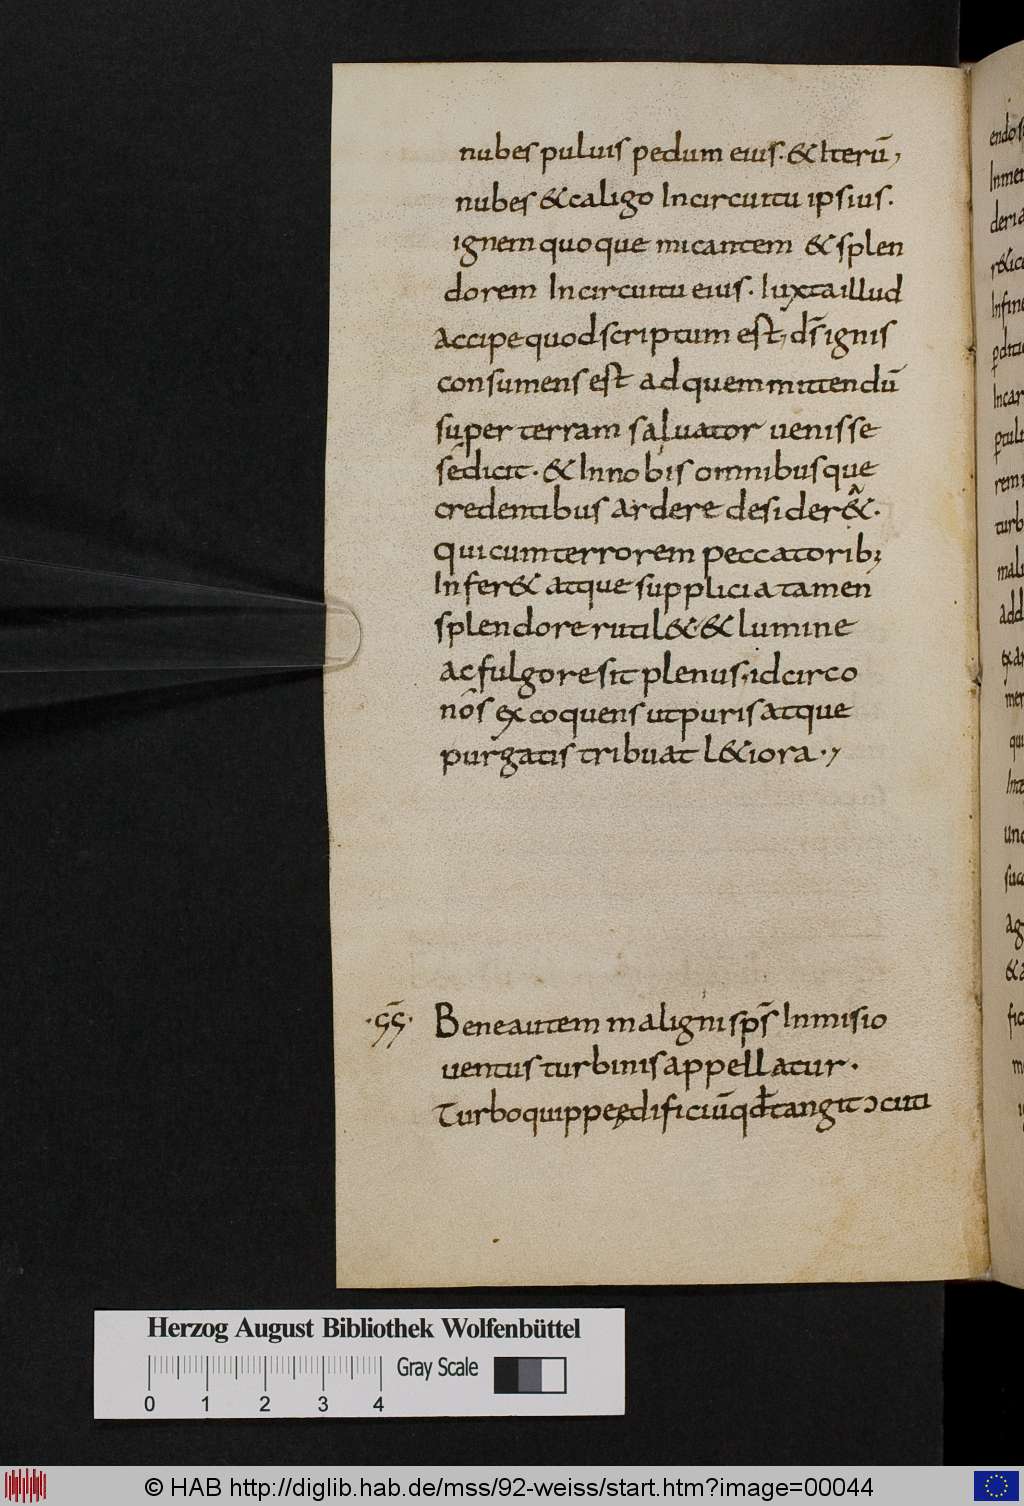 nubes puluis pedum eius. & Iterū,
nubes & caligo In circuitu ipsius.
ignem quoque micantem & splen
dorem In circuitu eius. Iuxta illud
accipe quod scriptum est, d̄s ignis
consumens est ad quem mittendū
super terram saluator uenisse
sedicit. & In nobis omnibusque
credentibus ardere desider&.
qui cum terrorem peccatorib;
Infer& atque supplicia tamen
splendore rutil& & lumine
ac fulgore sit plenus, idcirco
nōs excoquens ut puris atque
purgatis tribuat l&iora.,
Bene autem maligni sp̄s Inmisio
uentus turbinis appellatur.
Turbo quippe ędificiū qđ tangit ɔcuti
endos
Inmen
Infine
Incar
rem
turb
mali
add
Herzog August Bibliothek Wolfenbüttel
Gray Scale
0 1 2 3 4
© HAB http://diglib.hab.de/mss/92-weiss/start.htm?image=00044